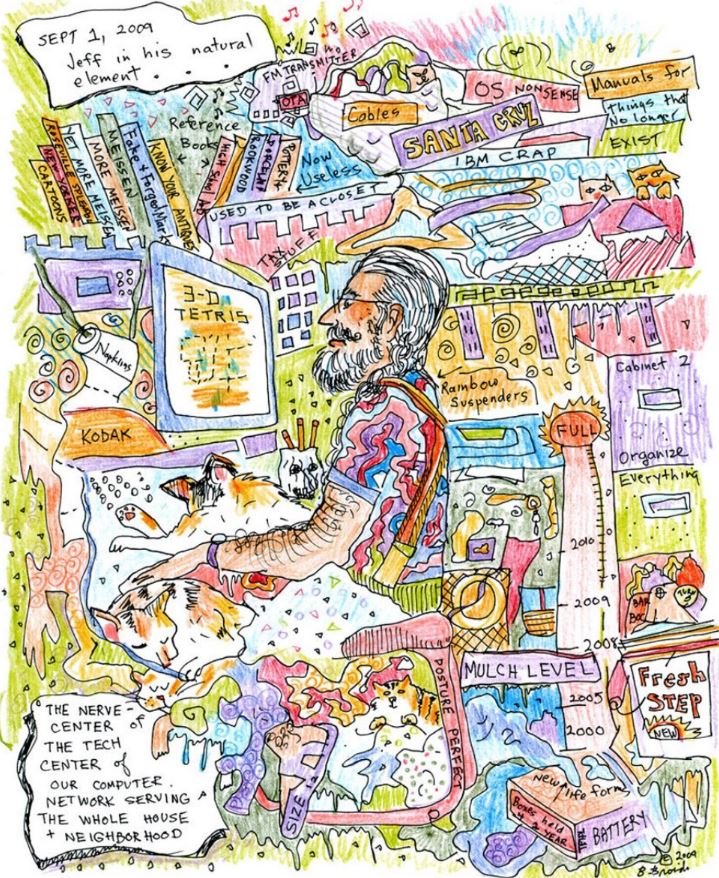 SEPT 1, 2009
Jeff in his natural
element . . . .
NO
FM TRANSMITTER
OTA
OS NONSENSE
Manuals for
Things that
No longer
EXIST
Cables
SANTA CRUZ
IBM CRAP
Reference
Books
Now
Useless
NEW YORKER
CARTOONS
YET MORE MEISSEN
MORE MEISSEN
MEISSEN
Fake + Forged Marks
KNOW YOUR ANTIQUES
ROOKWOOD
PORCELAIN
POTERY
USED TO BE A CLOSET
TAX STUFF
3-D
TETRIS
Napkins
KODAK
Rainbow
Suspenders
Cabinet 2
Organize
Everything
FULL
2010
2009
2008
2005
2000
MULCH LEVEL
BAR
BOC
Fresh
STEP
NEW
POSTURE PERFECT
SIZE
THE NERVE
CENTER of
THE TECH
CENTER of
OUR COMPUTER
NETWORK SERVING
THE WHOLE HOUSE
+ NEIGHBORHOOD
New life form
BATTERY
© 2009